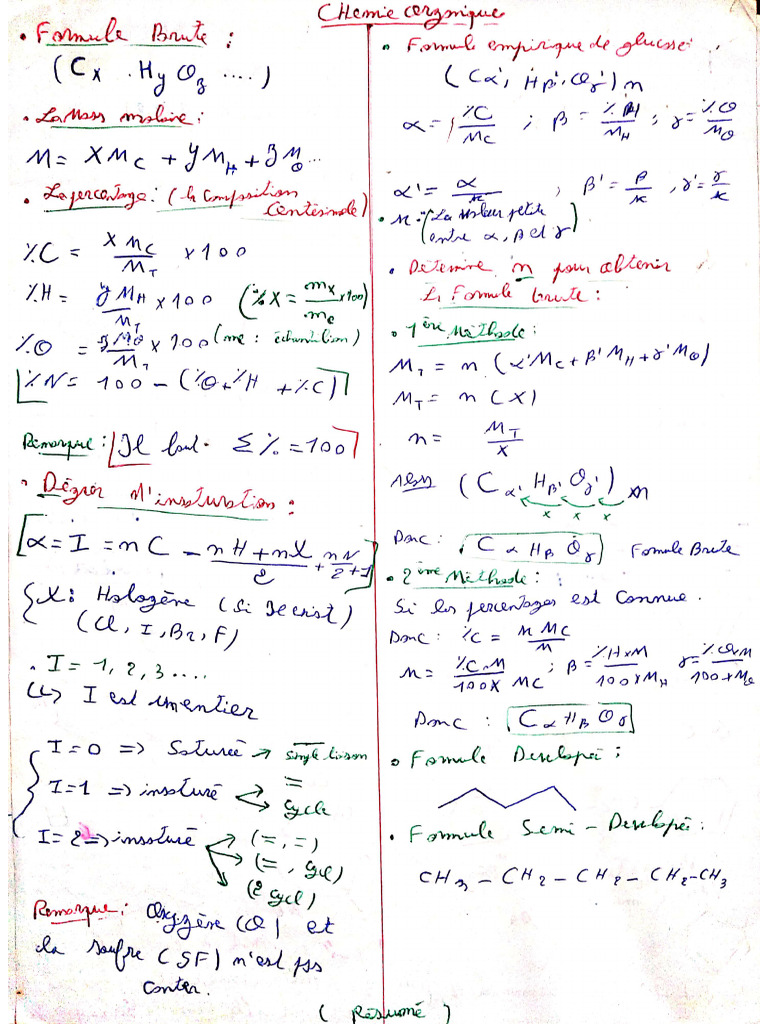 CHemie organique
• Formule Brute :
(Cx . Hy Oz ....)
• La Mass molaire :
M = X MC + y MH + z MO ...
• La percentage : ( la Composition
Centesimale )
%C = x MC / MT × 100
%H = y MH / MT × 100 (% X = mx / me × 100)
%O = z MO / MT × 100 (me : échantillon)
%N = 100 - (%O + %H + %C)
Remarque : Il faut Σ % = 100
• Dégrer d'insaturation :
α = I = nC - nH + nX / 2 + nN / 2 + 1
X : Halogène (Si Il exist)
(Cl, I, Br, F)
• I = 1, 2, 3 ....
↳ I est un entier
I = 0 => Saturée → single liaison
I = 1 => insaturé → =
→ cycle
I = 2 => insaturé → (=, =)
→ (=, cycl)
→ (2 cycl)
Remarque : Oxygène (O) et
la soufre (SF) n'est pas
conter.
• Formule empirique de glucose :
(Cα', Hβ', Oγ')n
α = %C / MC ; β = % H / MH ; γ = %O / MO
α' = α / k ; β' = β / k , γ' = γ / k
• k : (La valeur petite
entre α, β et γ)
• Determine n pour obtenir
La Formule brute :
• 1ère Methode :
MT = n (α' MC + β' MH + γ' MO)
MT = n (X)
n = MT / X
Alors (Cα' Hβ' Oγ') × n
x x x
Donc : Cα Hβ Oγ Fomule Brute
• 2ème Methode :
Si les percentages est Connue .
Donc : %C = n MC / M
n = %C . M / 100 × MC ; β = % H × M / 100 × MH γ = %O × M / 100 × MO
Donc : Cα Hβ Oγ
• Formule Developeé :
• Formule Semi - Developeé :
CH3 - CH2 - CH2 - CH2 - CH3
( Résumé )